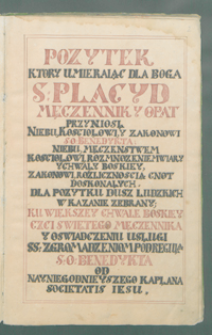 POZYTEK
KTORY UMIERAIĄC DLA BOGA
S. PLACYD
MĘCZENNIK Y OPAT
PRZYNIOSŁ
NIEBU, KOSCIOŁOWI, Y ZAKONOWI
S. O. BENEDYKTA.
NIEBU MĘCZENSTWEM
KOSCIOŁOWI ROZMNOZENIEM WIARY
Y CHWAŁY BOSKIEY,
ZAKONOWI ROZLICZNOSCIĄ CNOT
DOSKONAŁYCH.
DLA POZYTKU DUSZ LUDZKICH
W KAZANIE ZEBRANY;
KU WIĘKSZEY CHWALE BOSKIEY
CZCI SWIĘTEGO MĘCZENNIKA
Y OSWIADCZENIU USŁUGI
SS. ZGROMADZENIOM POD REGUŁĄ
S. O. BENEDYKTA
OD
NAYNIEGODNIEYSZEGO KAPŁANA
SOCIETATIS IESU.